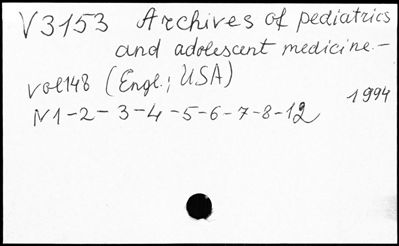 V3153 Archives of pediatrics
and adolescent medicine.-
vol148 (Engl.; USA)
1994
N1-2-3-4-5-6-7-8-12